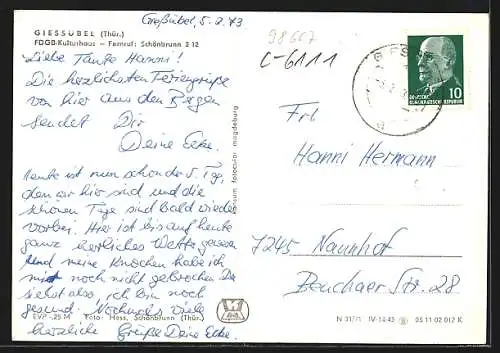 GIESSÜBEL (Thür.)
FDGB-Kulturhaus — Fernruf: Schönbrunn 2 12
Gießübel, 5.2.73
Liebe Tante Hanni!
Die herzlichsten Feriengrüße
von hier aus den Bergen
sendet Dir
Deine Ecke.
Heute ist nun schon der 5. Tag,
den wir hier sind und die
schönen Tage sind bald wieder
vorbei. Hier ist bis auf heute
ganz herrliches Wetter gewesen
und meine Knochen habe ich
mir noch nicht gebrochen. Du
siehst also, ich bin noch
gesund. Nochmals viele
herzliche Grüße Deine Ecke.
EVP -.25 M Foto: Hoss, Schönbrunn (Thür.)
bild und heimat fotocolor magdeburg
98667
C-6111
DEUTSCHE
DEMOKRATISCHE REPUBLIK
10
Frl
Hanni Hermann
7245 Naunhof
Beuchaer Str. 28
IV-14-45 05 11 02 012 K